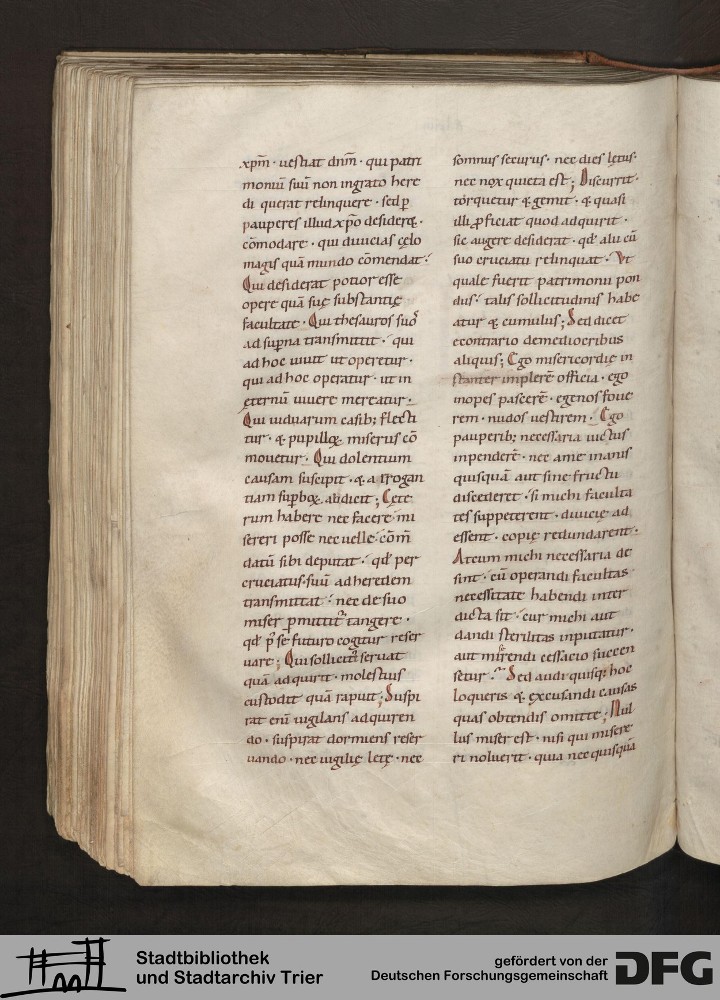 xp̄m · uestiat dn̄m · qui patri
moniū suū non ingrato here
di querat relinquere · sed ꝑ
pauperes illud xp̄o desideret ·
cōmodare · qui diuicias cęlo
magis quā mundo cōmendat ·
Qui desiderat potior esse
opere quā suę substantię
facultate · Qui thesauros suos
ad suꝑna transmittit · qui
ad hoc uiuit ut operetur ·
qui ad hoc operatur · ut in
ęternū uiuere mereatur ·
Qui uiduarum casib; flecti
tur · & pupilloꝝ miserus cō
mouetur · Qui dolentium
causam suscipit · & a rrogan
tiam suꝑboꝝ audieit ; Cęte
rum habere nec facere · mi
sereri posse nec uelle · cōm̄
datū sibi deputat · qđ per
cruciatus suū ad heredem
transmittat · nec de suo
miser ꝑmittit᷑ tangere ·
qđ p̱ se futuro cogitur reser
uare ; Qui sollicit᷑ seruat
quā adquirit · molestius
custodit quā rapuit ; Suspi
rat enū uigilans adquiren
do · suspirat dormiens reser
uando · nec uigilię lętę · nec
somnus securus · nec dies lętus ·
nec nox quieta est ; Discurrit ·
torquetur & gemit · & quasi
illi ꝓficiat quod adquirit ·
sic augere desiderat · qđ alii cū
suo cruciatu relinquat · Vt
quale fuerit patrimonii pon
dus · talis sollicitudinis habe
atur & cumulus ; Sed dicet
econtrario demediocribus
aliquis ; Ego misericordię in
stanter implerē officia · ego
inopes pascerē · egenos foue
rem · nudos uestirem · Ego
pauperib; necessaria uictus
inpenderē · nec ame inanis
quisquā aut sine fructu
discederet · si michi faculta
tes suppeterent · diuicię ad
essent · copię redundarent ·
At cum michi necessaria de
sint · cū operandi facultas
necessitate habendi inter
dicta sit · cur michi aut
dandi sterilitas inputatur ·
aut miserendi cessacio succen
setur · Sed audi quisq; hoc
loqueris & excusandi causas
quas obtendis omitte ; Nul
lus miser est · nisi qui misere
ri noluerit · quia nec quisquā
Stadtbibliothek
und Stadtarchiv Trier
gefördert von der
Deutschen Forschungsgemeinschaft
DFG